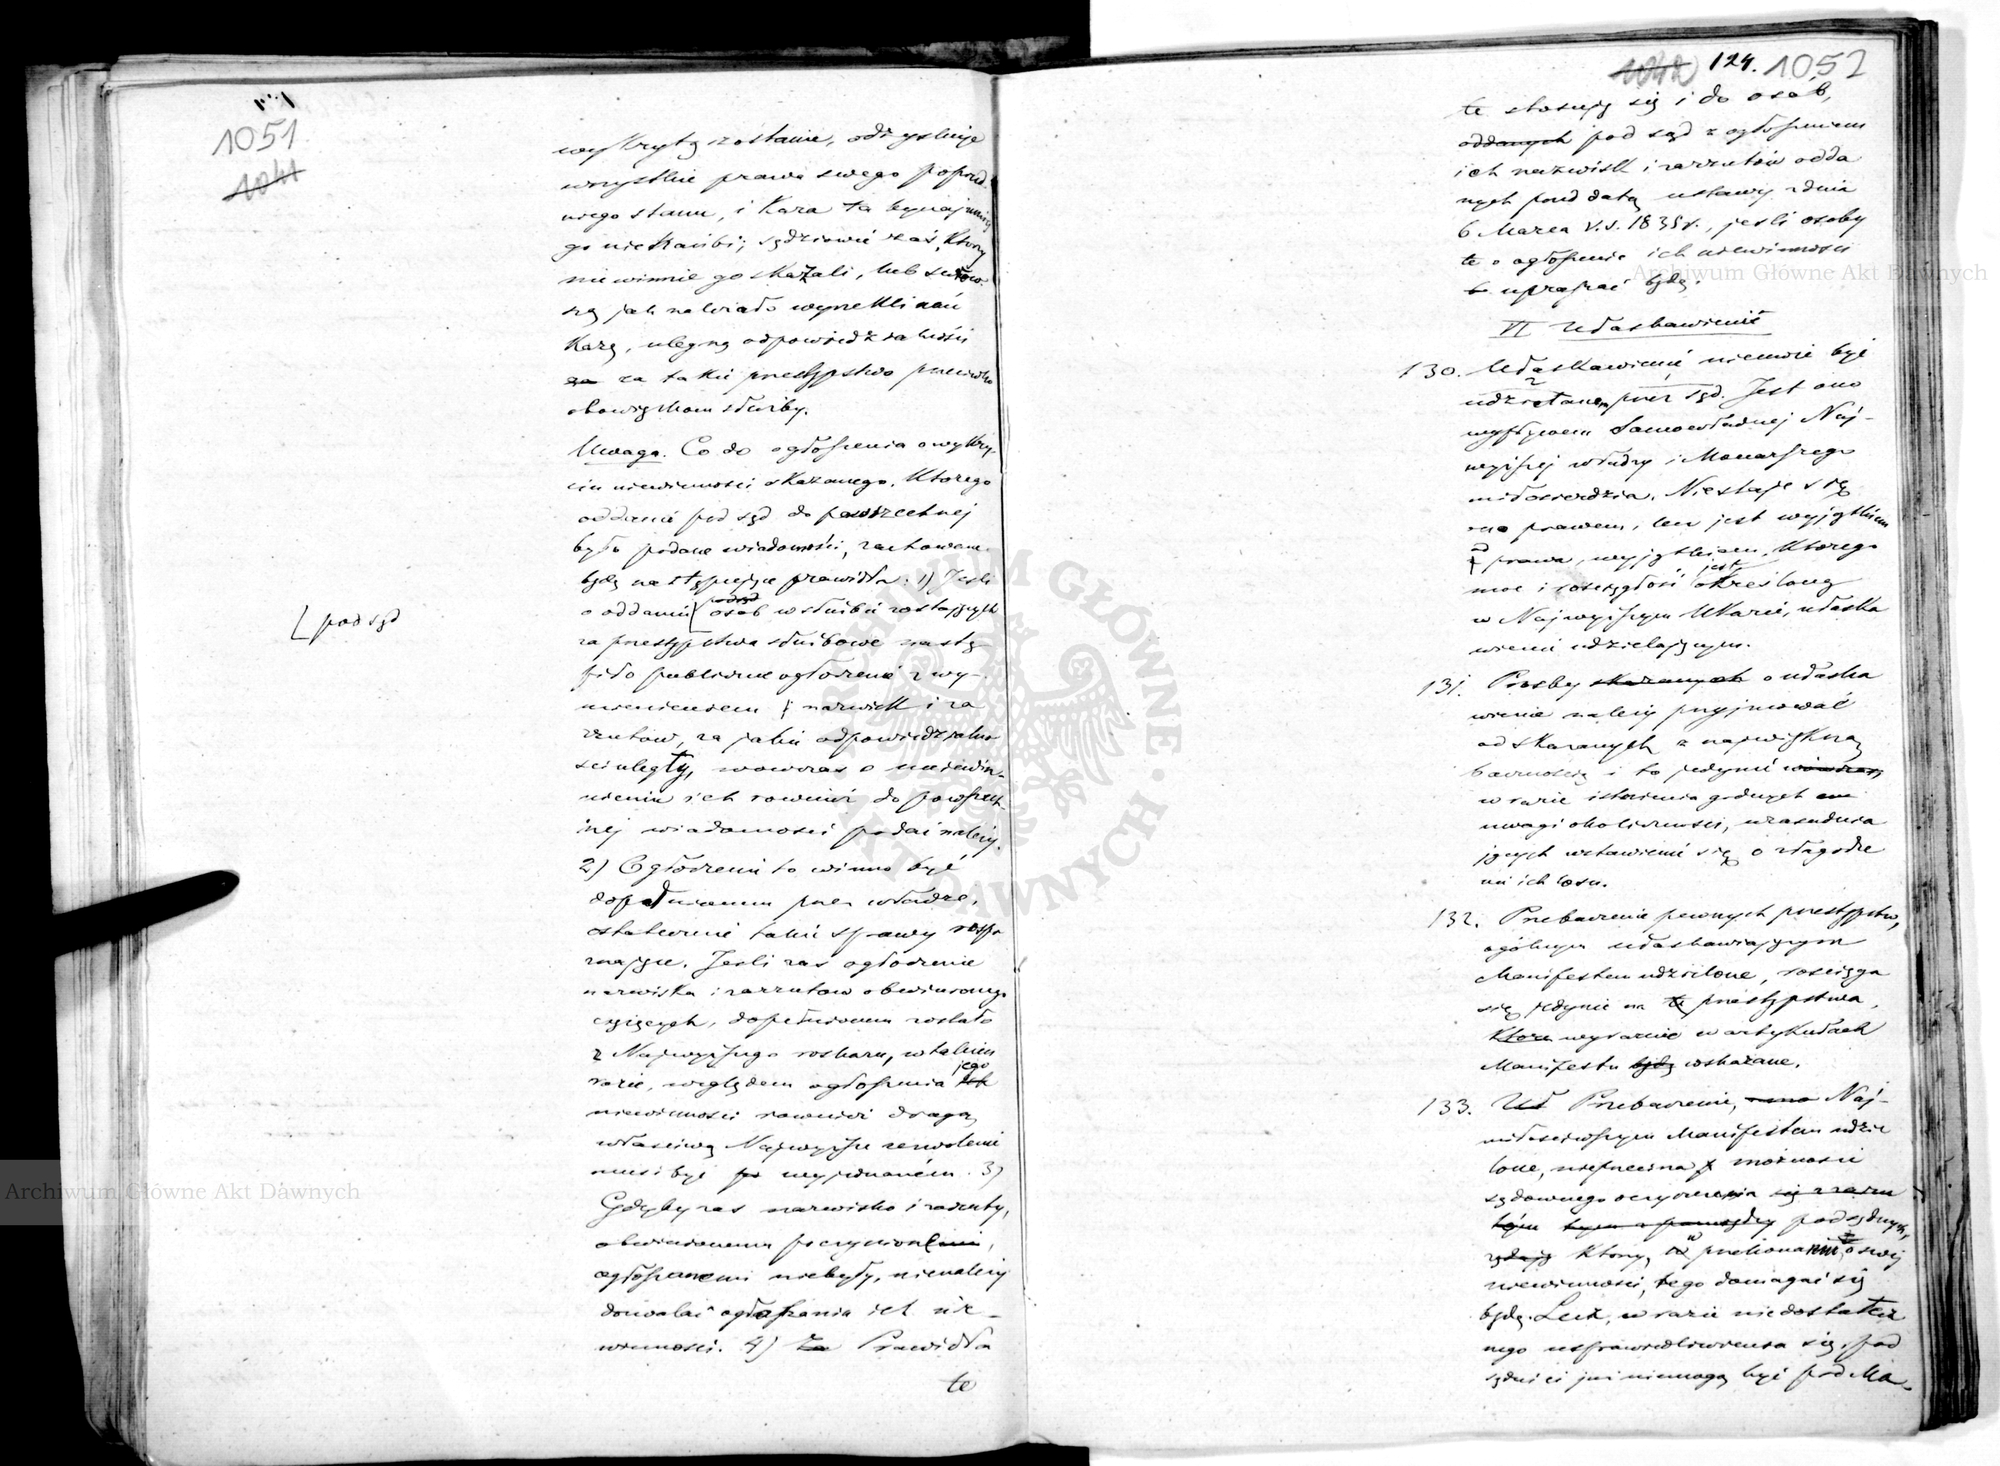 1051
1041
wykrytą zostanie, odzyskuje
wszystkie prawa swego poprzed-
niego stanu, i kara ta bynajmniej
go nie hańbi; sędziowie zaś, którzy
niewinnie go skazali, lub surow-
szą jak należało wyrzekli nań
karę, ulegną odpowiedzialności
za za takie przestępstwo przeciwko
obowiązkom służby.
Uwaga. Co do ogłoszenia o wykry-
ciu niewinności skazanego, którego
oddanie pod sąd do powszechnej
było podane wiadomości, zachowane
będą następujące prawidła: 1) Jeśli
o oddaniu osób w służbie zostających
[pod sąd
za przestępstwa służbowe nastą
piło publiczne ogłoszenie z wy-
mienieniem nazwisk i za
rzutów, za jakie odpowiedzialno
ści uległy, wówczas o uniewin-
nieniu ich również do powszech-
nej wiadomości podać należy.
2) Ogłoszenie to winno być
dopełnionem przez władzę,
ostatecznie takie sprawy rozpo
znającą. Jeśli zaś ogłoszenie
nazwiska i zarzutów obwinionego
ciążących, dopełnionem zostało
z Najwyższego rozkazu, w takim
razie, względem ogłoszenia jego
niewinności również drogą
właściwą Najwyższe zezwolenie
musi być wyjednanem. 3)
Gdyby zaś nazwisko i zarzuty,
obwinionemu poczynione,
ogłoszonemi niebyły, nienależy
dozwalać ogłaszania ich nie-
winności. 4) Za Prawidła
te
1042 124. 1052
te stosują się i do osób,
oddanych pod sąd z ogłoszeniem
ich nazwisk i zarzutów odda
nych pod datą ustawy z dnia
6 Marca v.s. 1835 r., jeśli osoby
te o ogłoszenie ich niewinności
upraszać będą.
VI Ułaskawienie
130. Ułaskawienie niemoże być
udzielanem przez sąd. Jest ono
wypływem Samowładnej Naj-
wyższej władzy i Monarszego
miłosierdzia. Niestaje się
ono prawem, lecz jest wyjątkiem
od prawa, wyjątkiem, którego
moc i rosciągłość jest określoną
w Najwyższym Ukazie, ułaska
wienie udzielającym.
131. Prośby skazanych o ułaska
wienie należy przyjmować
od skazanych z największą
bacznością i to jedynie wówczas
w razie istnienia godnych
uwagi okoliczności, uzasadnia
jących wstawienie się o złagodze
nie ich losu.
132. Przebaczenie pewnych przestępstw,
ogólnym ułaskawiającym
Manifestem udzielone, rosciąga
się jedynie na te przestępstwa,
które wyraźnie w artykułach
Manifestu będą wskazane.
133. Uł Przebaczenie, Naj-
miłościwszym Manifestem udzie
lone, niepozbawia możności
sądownego oczyszczenia się
podsądnych,
którzy, w przekonaniu o swej
niewinności, tego domagać się
będą. Lecz, w razie niedostatecz
nego usprawiedliwienia się, pod
sądni ci już niemogą być pod Ma-
Archiwum Główne Akt Dawnych
Archiwum Główne Akt Dawnych
ARCHIWUM GŁÓWNE AKT DAWNYCH